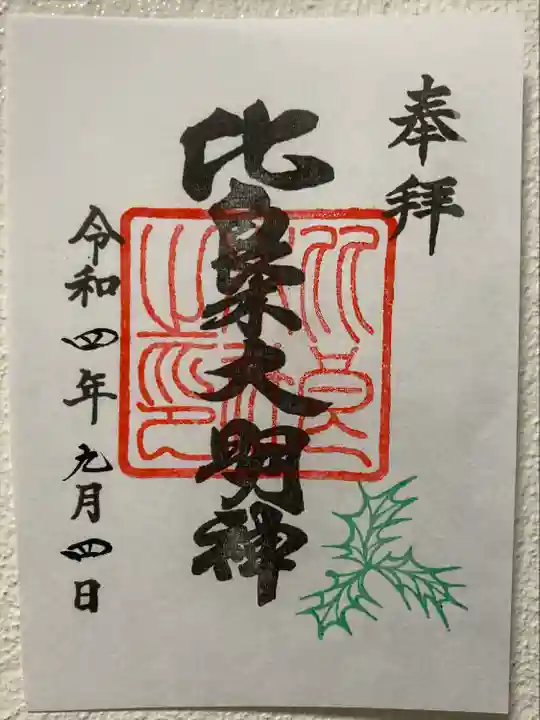 奉拝
比良木大明神
令和四年九月四日